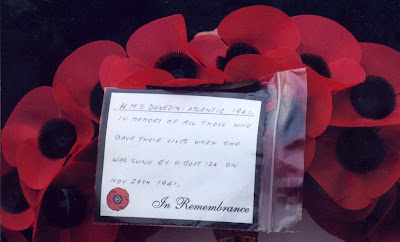 H.M.S DUNEDIN. ATLANTIC 1941.
IN MEMORY OF ALL THOSE WHO
GAVE THEIR LIVES WHEN SHE
WAS SUNK BY U-BOAT 124 ON
NOV 24TH 1941.
In Remembrance